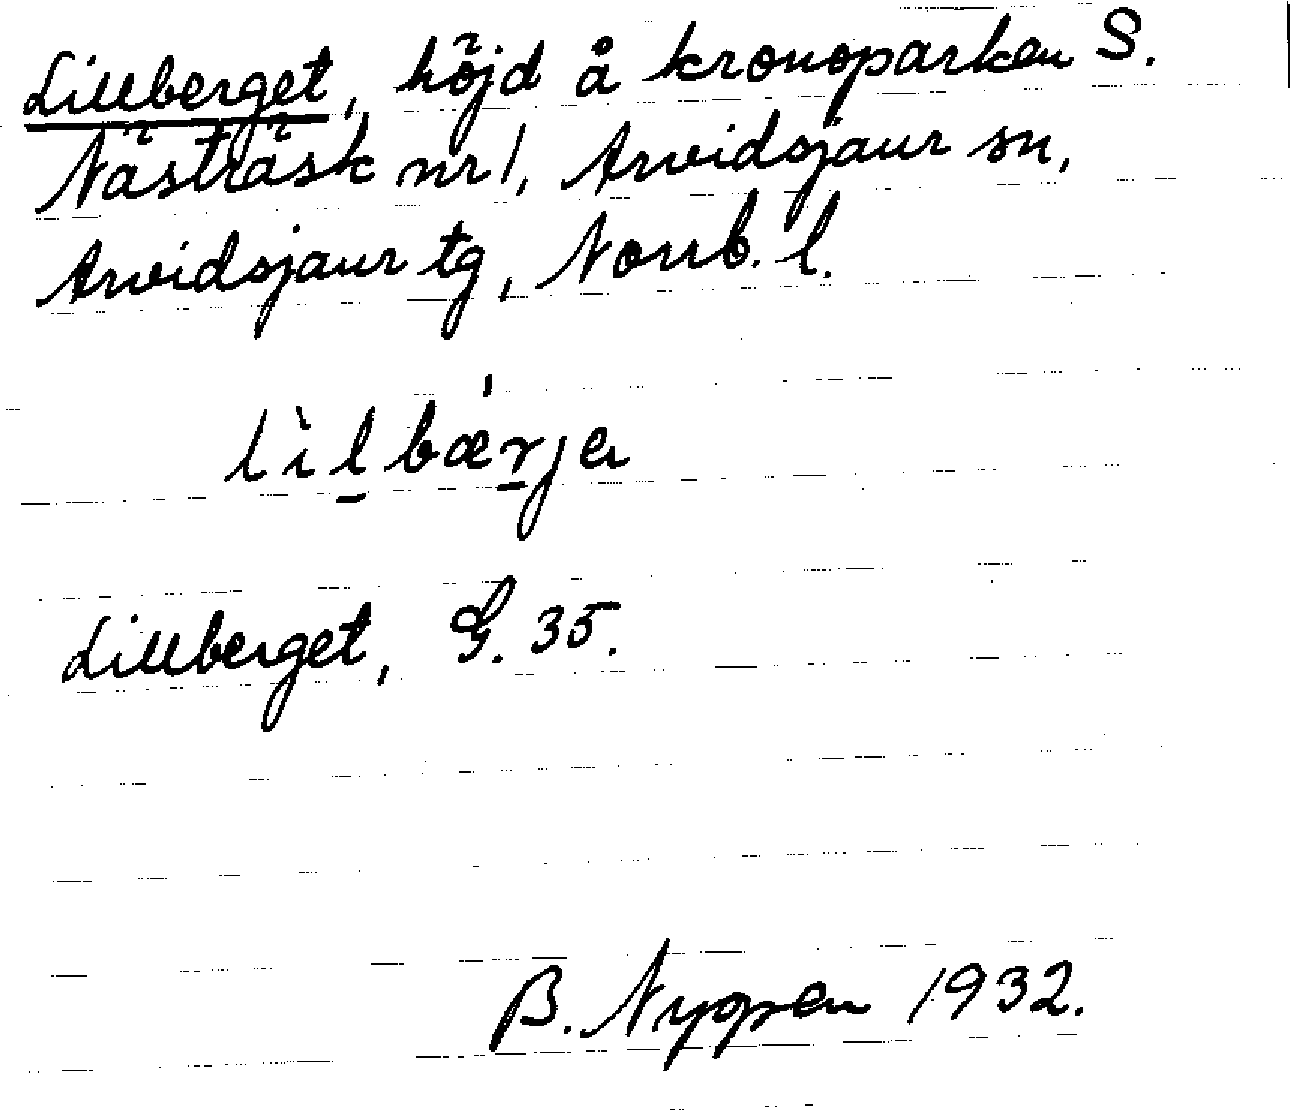 Lillberget, höjd å kronoparken S.
Nästräsk nr 1, Arvidsjaur sn,
Arvidsjaur tg, Norrb. l.
lìlbæ̀rja
Lillberget, G. 35.
B. Nygren 1932.